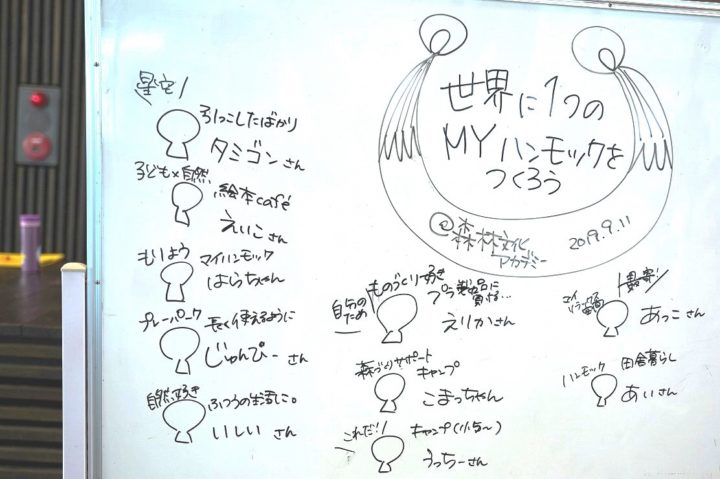 世界に1つの
MYハンモックを
つくろう
@森林文化
アカデミー
2019.9.11
星空!
引っこしたばかり
タミゴンさん
子ども×自然
絵本café
えいこさん
マイハンモック
はらちゃん
プレーパーク
長く使えるように
じゅんぴーさん
自然好き
ふつうの生活に。
いしいさん
ものづくり好き
自分の
ため
プラ製品に
えりかさん
森づくりサポート
キャンプ
こまっちゃん
これだ!!
キャンプ(小5〜)
うっちーさん
あっこさん
ハンモック
田舎暮らし
あいさん